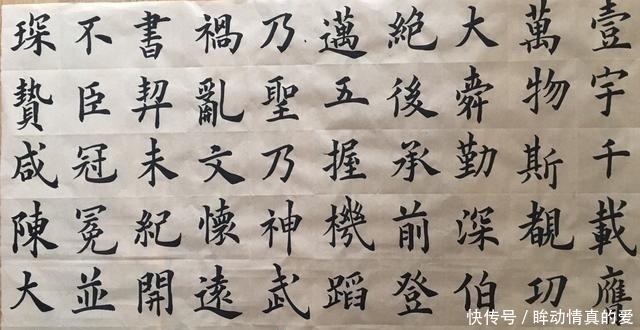 壹宇千載應
萬物斯覩功
大舜勤深伯
絶後承前登
邁五握機蹈
乃聖乃神武
禍亂文懷遠
書契未紀開
不臣冠冕並
琛贄咸陳大
快传号/眸动情真的爱